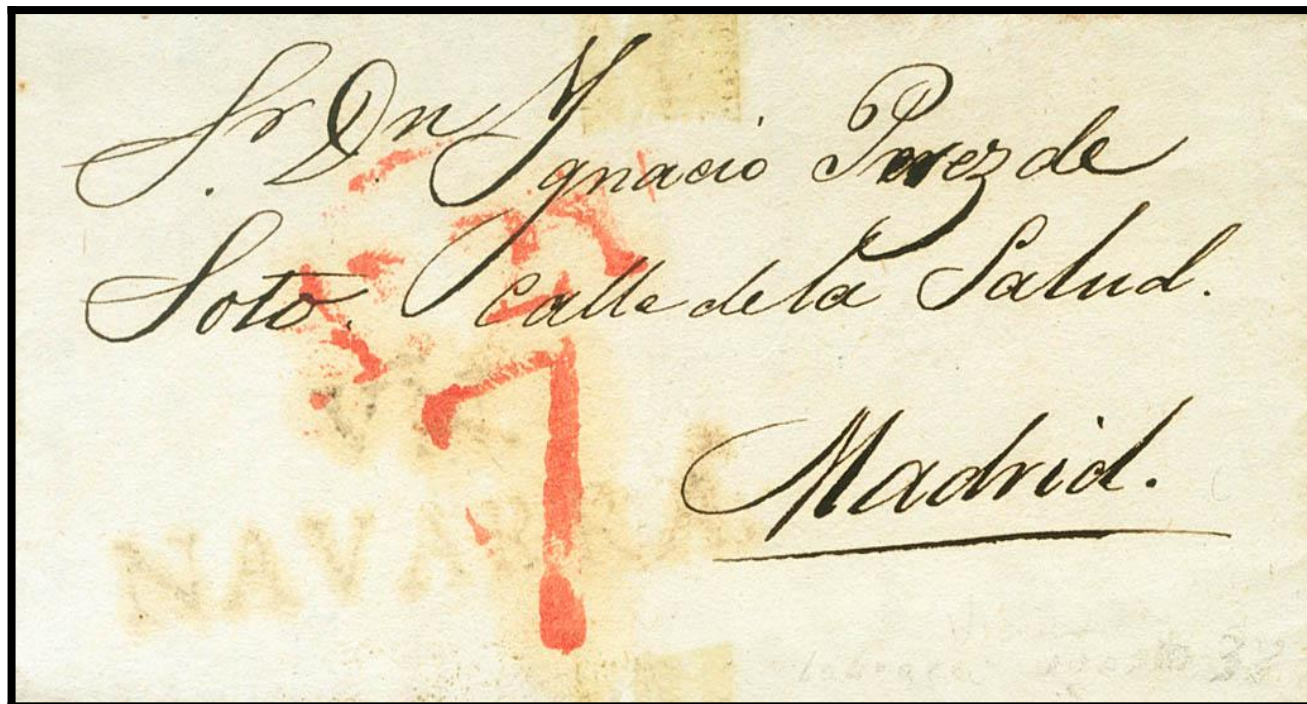 Sr Dn Ygnacio Perez de
Soto. Calle de la Salud.
Madrid.